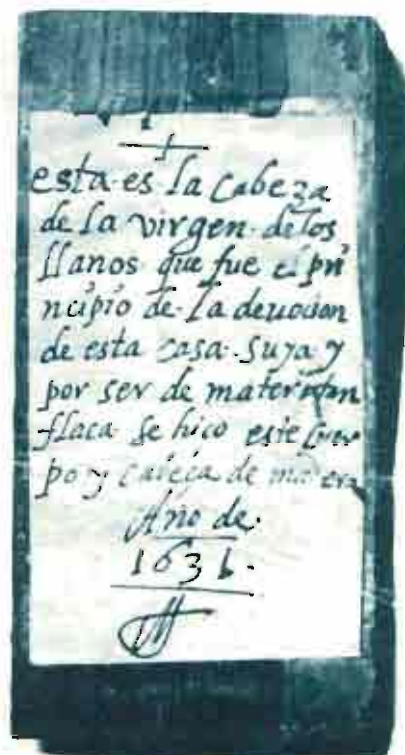 esta es la Cabeza
de la virgen de los
llanos que fue el pri
ncipio de la deuocion
de esta casa suya y
por ser de materia tan
flaca se hico este Cuer
po y cabeça de madera
Año de
1631